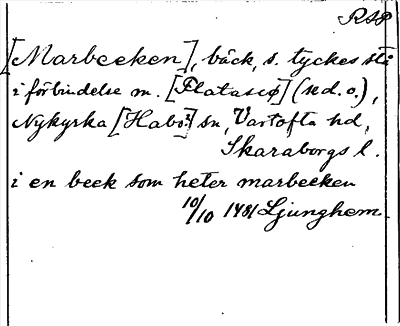 RAP
[Marbecken], bäck, s. tyckes stå
i förbindelse m. [Plataseø] (nd. o.),
Nykyrka [Habo?] sn, Vartofta hd,
Skaraborgs l.
i en beck som heter marbecken
10/10 1481 Ljunghem.